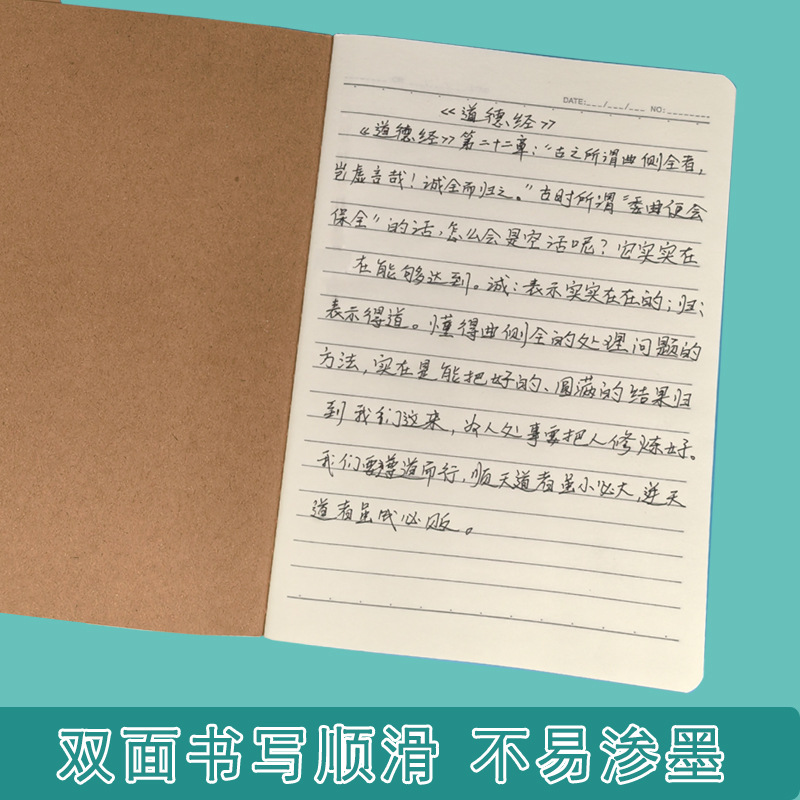 DATE:___/___/___ NO:________
《道德经》
《道德经》第二十二章：“古之所谓曲侧全者，
岂虚言哉！诚全而归之。”古时所谓“委曲便会
保全”的话，怎么会是空话呢？它实实在
在能够达到。诚：表示实实在在的；归：
表示得道。懂得曲侧全的处理问题的
方法，实在是能把好的、圆满的结果归
到我们这来，为人处事要把人修炼好。
我们要尊道而行，顺天道者虽小必大，逆天
道者虽成必败。
双面书写顺滑 不易渗墨